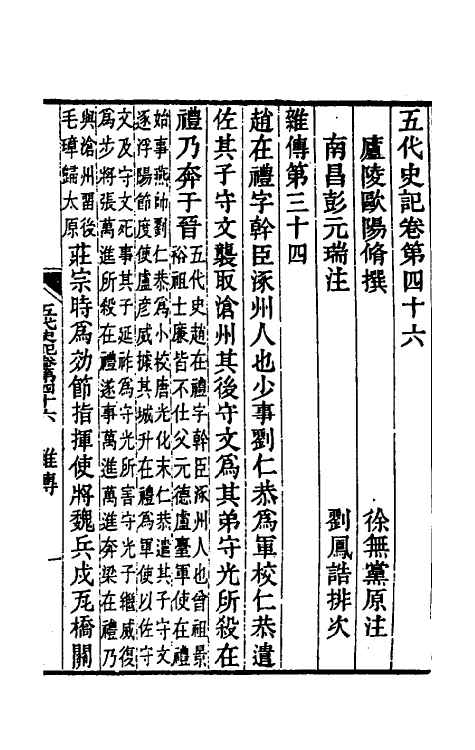 五代史記卷第四十六
廬陵歐陽脩撰　徐無黨原注
南昌彭元瑞注　劉鳳誥排次
雜傳第三十四
趙在禮字幹臣涿州人也少事劉仁恭爲軍校仁恭遣
佐其子守文襲取滄州其後守文爲其弟守光所殺在
禮乃奔于晉五代史趙在禮字幹臣涿州人也曾祖景
裕祖士廉皆不仕父元德盧臺軍使在禮
始事燕帥劉仁恭爲小校唐光化末仁恭遣其子守文
逐浮陽節度使盧彥威據其城升在禮爲軍使以佐守
文及守文死事其子延祚爲守光所害守光子繼威復
爲步將張萬進所殺在禮遂事萬進萬進奔梁在禮乃
與滄州留後
毛璋歸太原莊宗時爲効節指揮使將魏兵戍瓦橋關
五代史記卷第四十六　雜傳　一